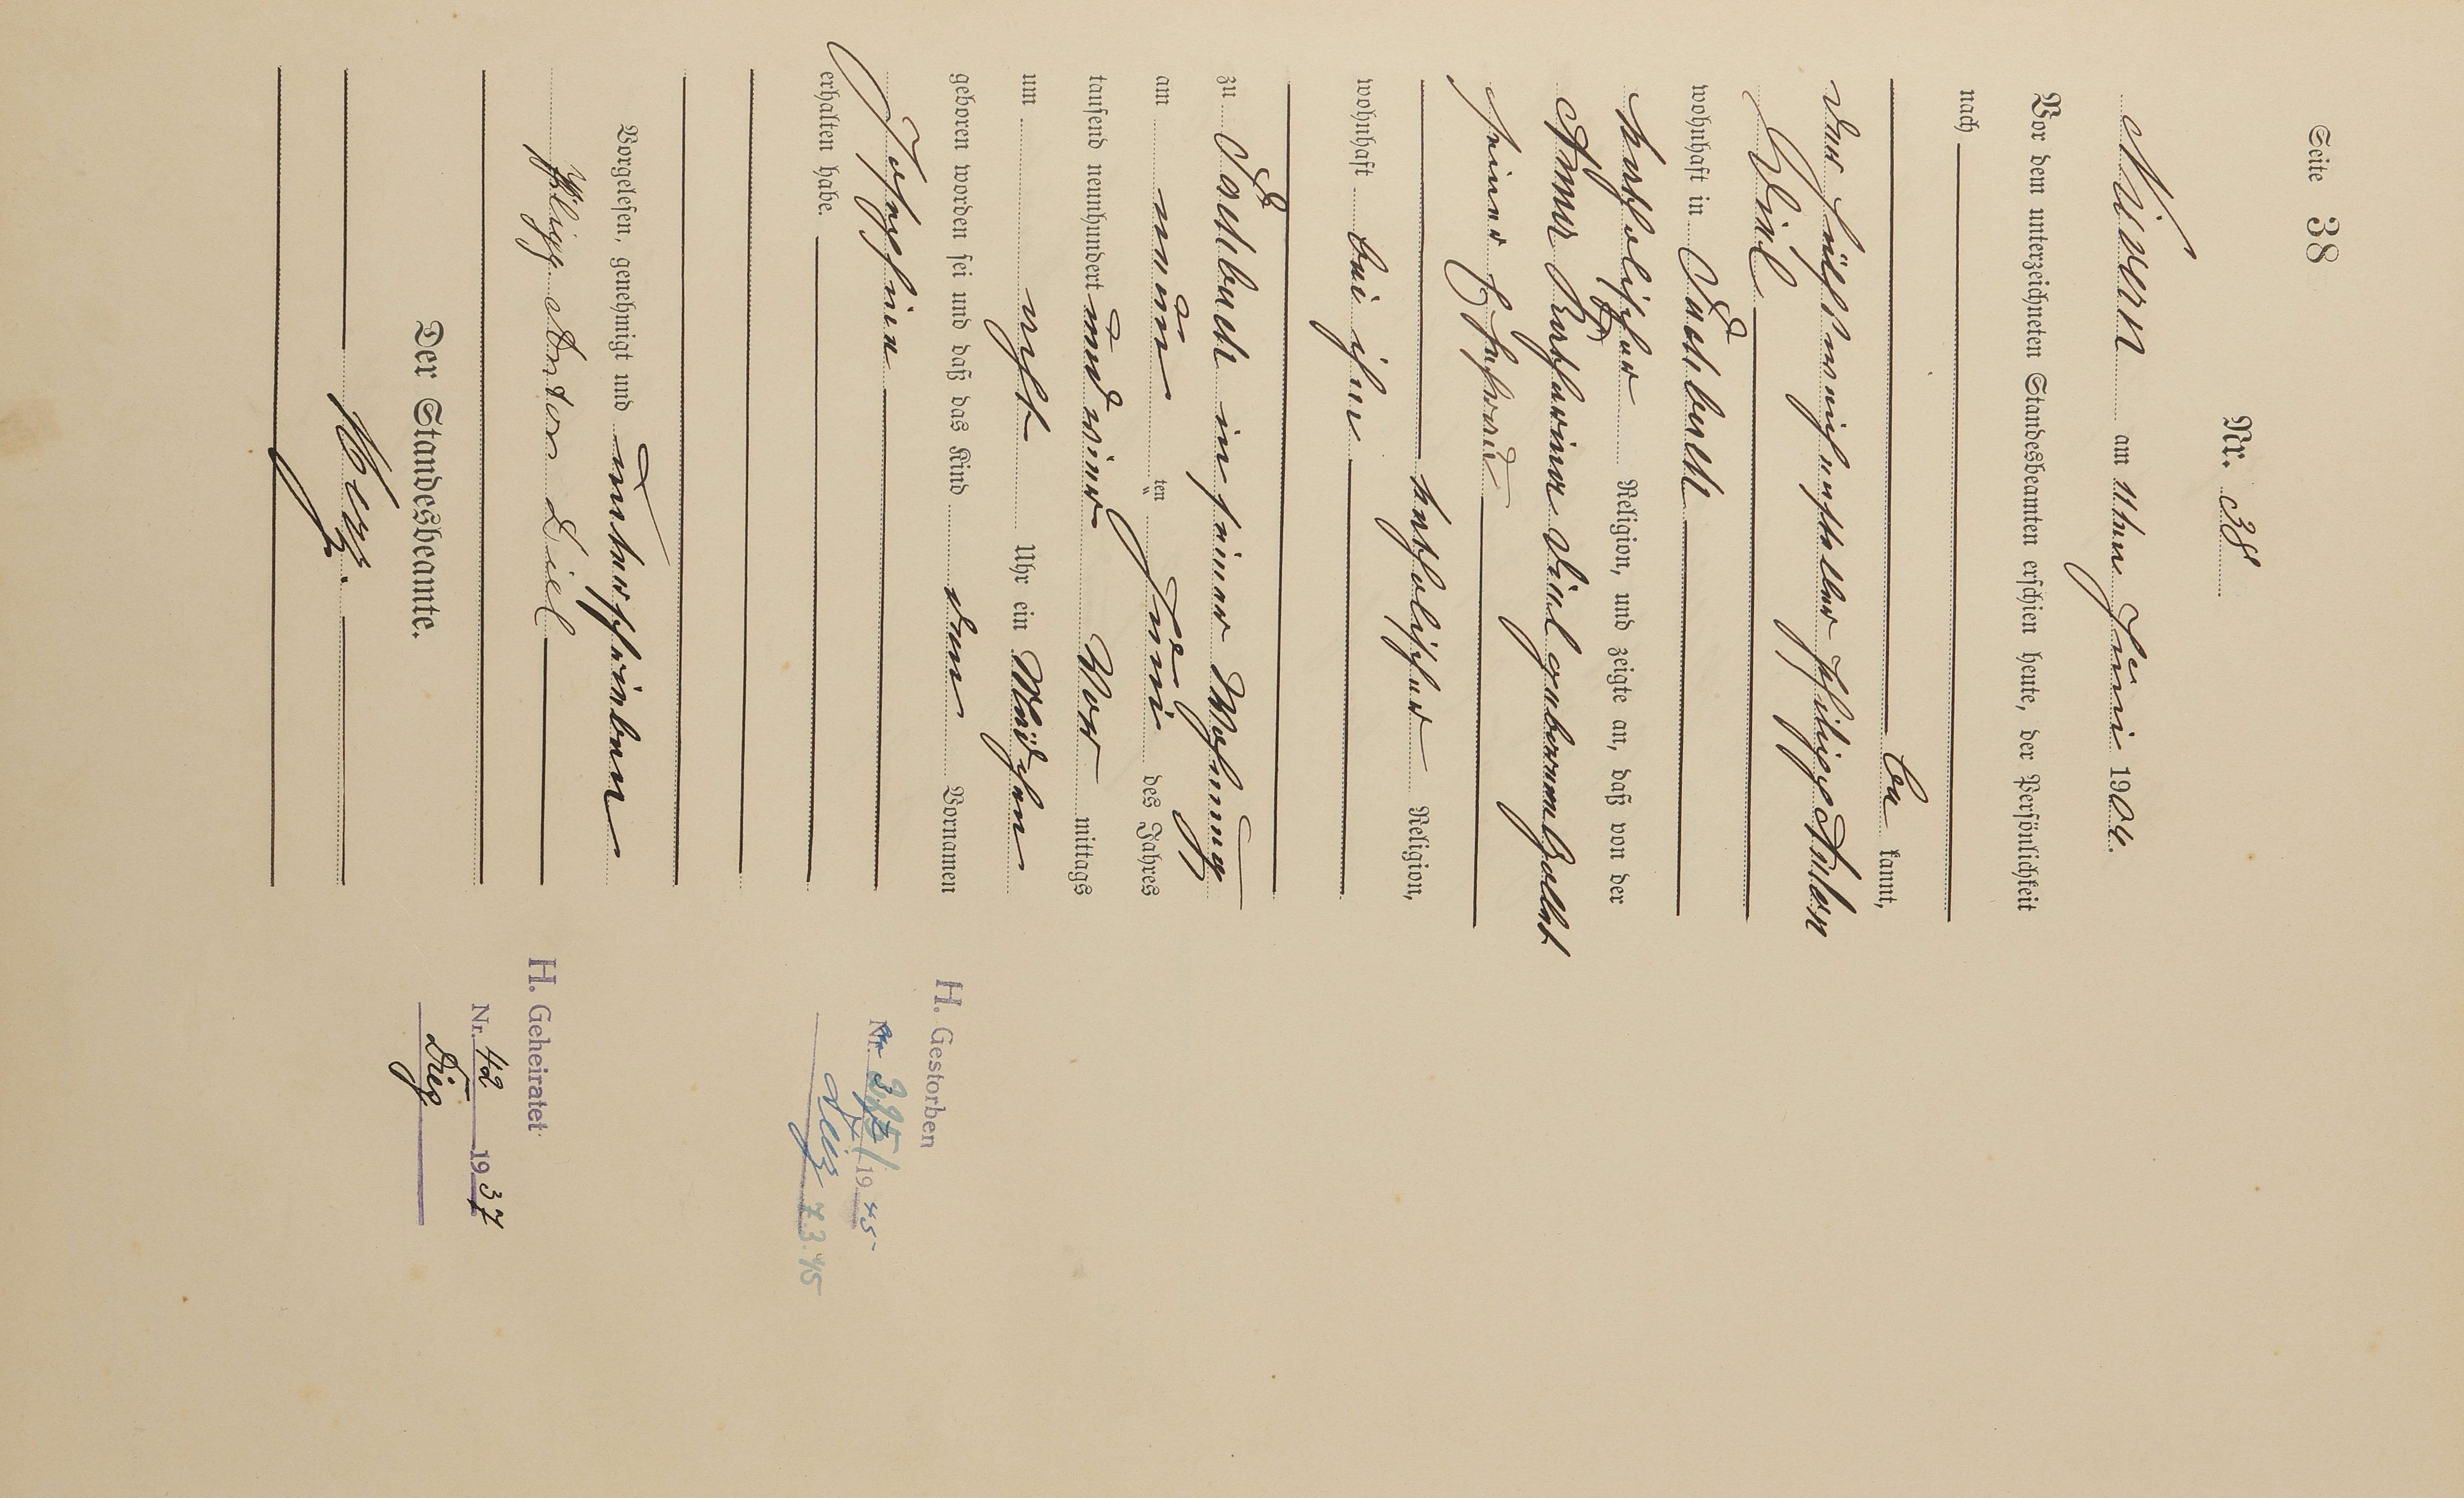 Seite 38
Nr. 38
Nievern am 11ten Juni 1904.
Vor dem unterzeichneten Standesbeamten erschien heute, der Persönlichkeit
nach
be kannt,
der Philipp Anton
Diel
wohnhaft in Fachbach
katholischer Religion, und zeigte an, daß von der
Anna Katharina Diel geborenen
seiner Ehefrau
katholischer Religion,
wohnhaft bei ihm
zu Fachbach in seiner Wohnung
am neun ten Juni des Jahres
tausend neunhundert und vier Vor mittags
um acht Uhr ein Mädchen
geboren worden sei und daß das Kind den Vornamen
Josephine
erhalten habe.
Vorgelesen, genehmigt und unterschrieben
Philipp Anton Diel
Der Standesbeamte.
H. Gestorben
Nr. 19 45
7.3.45
H. Geheiratet
Nr. 42 19 37
Diez